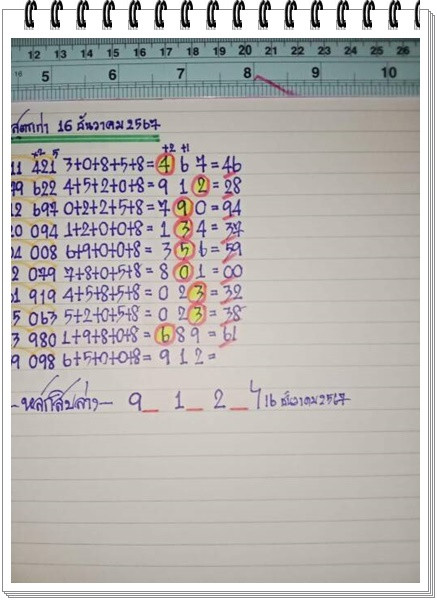 12 13 14 15 16 17 18 19 20 21 22 23 24 25 26
5 6 7 8 9 10
สูตรเก่า 16 ธันวาคม 2567
+2 +1
11 421 3+0+8+5+8= 4 6 7 = 46
79 622 4+5+2+0+8= 9 1 2 = 28
12 697 0+2+2+5+8= 7 9 0 = 94
20 094 1+2+0+0+8= 1 3 4 = 37
04 008 6+9+0+0+8= 3 5 6 = 59
2 079 7+8+0+5+8= 8 0 1 = 00
61 919 4+5+8+5+8= 0 2 3 = 32
5 063 5+2+0+5+8= 0 2 3 = 38
3 980 1+9+8+0+8= 6 8 9 = 61
9 098 6+5+0+0+8= 9 1 2 =
-หลักสิบล่าง- 9_ 1_ 2_ 16 ธันวาคม 2567